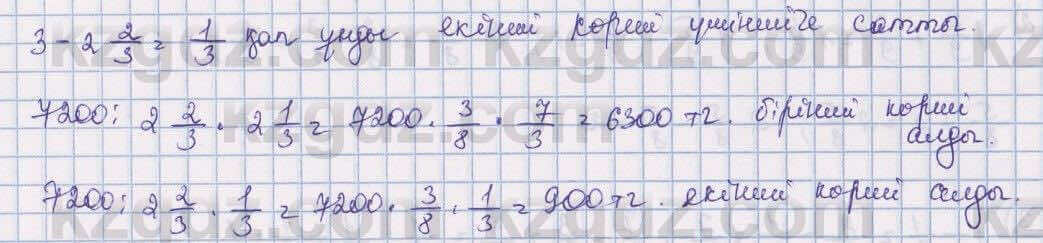 3 - 2 2/3 = 1/3 қап ұнды екінші көрші үшіншіге сатты.
7200 : 2 2/3 · 2 1/3 = 7200 · 3/8 · 7/3 = 6300 тг. бірінші көрші алды.
7200 : 2 2/3 · 1/3 = 7200 · 3/8 · 1/3 = 900 тг. екінші көрші алды.